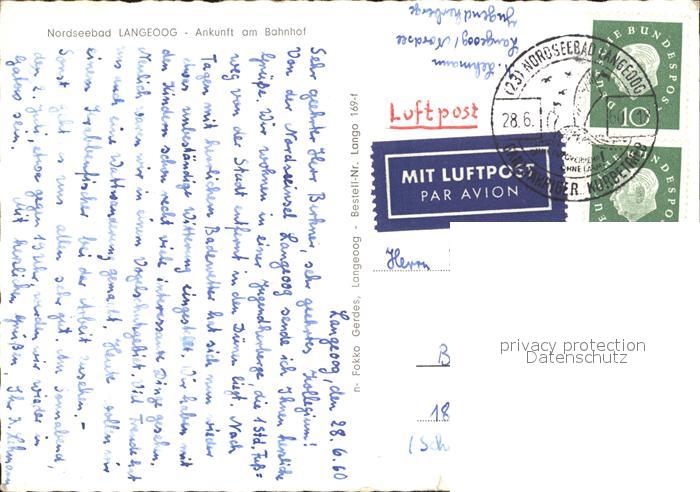 Nordseebad LANGEOOG - Ankunft am Bahnhof
Langeoog, den 28.6.60
Sehr geehrter Herr Büchner, sehr geehrtes Kollegium!
Von der Nordseeinsel Langeoog sende ich Ihnen herzliche
Grüße. Wir wohnen in einer Jugendherberge, die 1 Std. Fuß=
weg von der Stadt entfernt in den Dünen liegt. Nach
Tagen mit herrlichem Badewetter hat sich nun wieder
unbeständige Witterung eingestellt. Wir haben mit
den Kindern schon recht viele interessante Dinge gesehen.
Neulich waren wir in einem Vogelschutzgebiet. Viel Freude hat
uns auch eine Wattwanderung gemacht. Heute wollen wir
einem Krabbenfischer bei der Arbeit zusehen. -
Sonst geht es uns allen sehr gut. Am Sonnabend,
den 2. Juli, etwa gegen 19 Uhr, werden wir wieder in
sein.
Mit herzlichen Grüßen Ihr K. Lehmann
n- Fokko Gerdes, Langeoog - Bestell-Nr. Lango 169-f
K. Lehmann
Langeoog/Nordsee
Jugendherberge
Luftpost
MIT LUFTPOST
PAR AVION
(23) NORDSEEBAD LANGEOOG
28.6.
DEUTSCHE BUNDESPOST
10
DEUTSCHE BUNDESPOST
Herrn
B
18
(Sch
privacy protection
Datenschutz